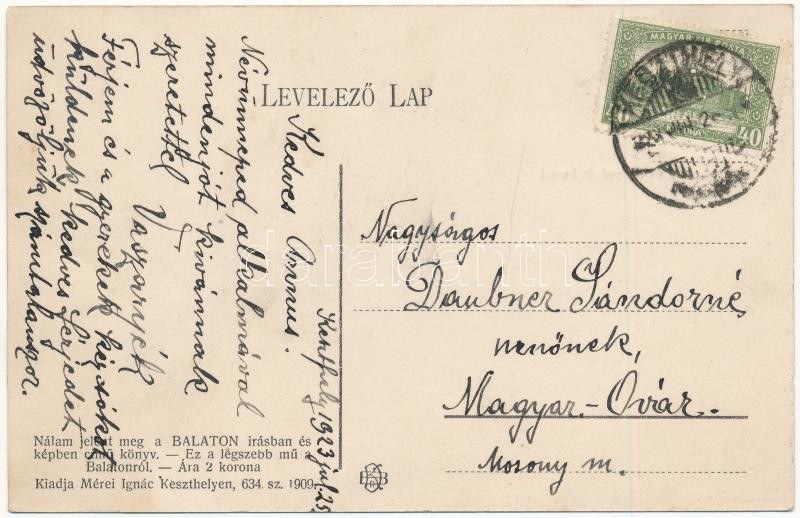 LEVELEZŐ LAP
MAGYAR KIR. POSTA
40
KORONA
KESZTHELY
Keszthely 1923 jul. 25.
Kedves Annus.
Névünneped alkalmával
mindenjót kivánnak
szeretettel
Vaszaryék
Férjem és a gyerekek kézcsókot
küldenek, kedves férjedet
üdvözöljük számtalanszor.
Nagyságos
Daubner Sándorné
nenőnek,
Magyar-Óvár.
Mosony m.
Nálam jelent meg a BALATON irásban és
képben cimű könyv. — Ez a légszebb mű a
Balatonról. — Ára 2 korona
Kiadja Mérei Ignác Keszthelyen, 634. sz. 1909.
darabanth